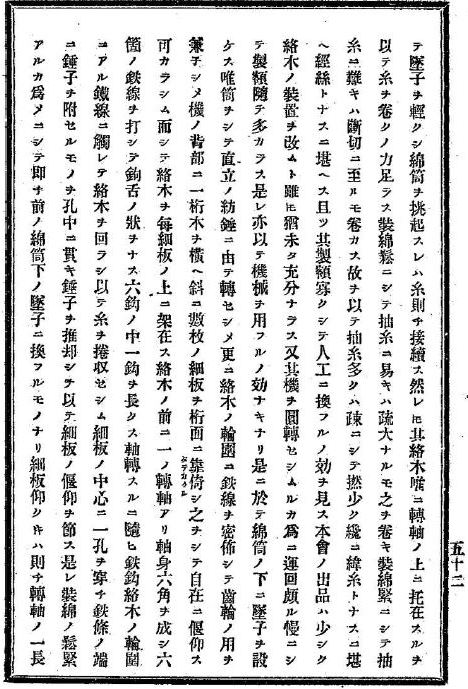 テ墜子ヲ輕クシ綿筒ヲ挑起スレハ糸則チ接續ス然レ𪜈其絡木唯ニ轉軸ノ上ニ托在スルヲ
以テ糸ヲ卷クノ力足ラス裝綿鬆ニシテ抽糸ニ易キハ疏大ナルモ之ヲ卷キ裝綿緊ニシテ抽
糸ニ難キハ斷切ニ至ルモ卷カス故ヲ以テ抽糸多クハ疎ニシテ撚少ク纔ニ緯糸トナスニ堪
ヘ經絲トナスニ堪ヘス且ツ其製額寡クシテ人工ニ換フルノ効ヲ見ス本會ノ出品ハ少シク
絡木ノ裝置ヲ改ムト雖モ猶未タ充分ナラス又其機ヲ圓轉セシムルカ爲ニ運回頗ル慢ニシ
テ製額隨テ多カラス是レ亦以テ機械ヲ用フルノ効ナキナリ是ニ於テ綿筒ノ下ニ墜子ヲ設
ケス唯筒ヲシテ直立ノ紡錘ニ由テ轉セシメ更ニ絡木ノ輪圍ニ鉄線ヲ密佈シテ齒輪ノ用ヲ
兼子シメ機ノ背部ニ一桁木ヲ橫ヘ斜ニ數枚ノ細板ヲ桁面ニ靠倚シ之ヲシテ自在ニ偃仰ス
可カラシム而シテ絡木ヲ每細板ノ上ニ架在ス絡木ノ前ニ一ノ轉軸アリ軸身六角ヲ成シ六
箇ノ鉄線ヲ打シテ鉤舌ノ狀ヲナス六鉤ノ中一鉤ヲ長クス軸轉スルニ隨ヒ鉄鉤絡木ノ輪圍
ニアル鐵線ニ觸レテ絡木ヲ回ラシ以テ糸ヲ捲収セシム細板ノ中心ニ一孔ヲ穿チ鉄條ノ端
ニ錘子ヲ附セルモノヲ孔中ニ貫キ錘子ヲ推却シテ以テ細板ノ偃仰ヲ節ス是レ裝綿ノ鬆緊
アルカ爲メニシテ即チ前ノ綿筒下ノ墜子ニ換フルモノナリ細板仰クキハ則チ轉軸ノ一長
五十三